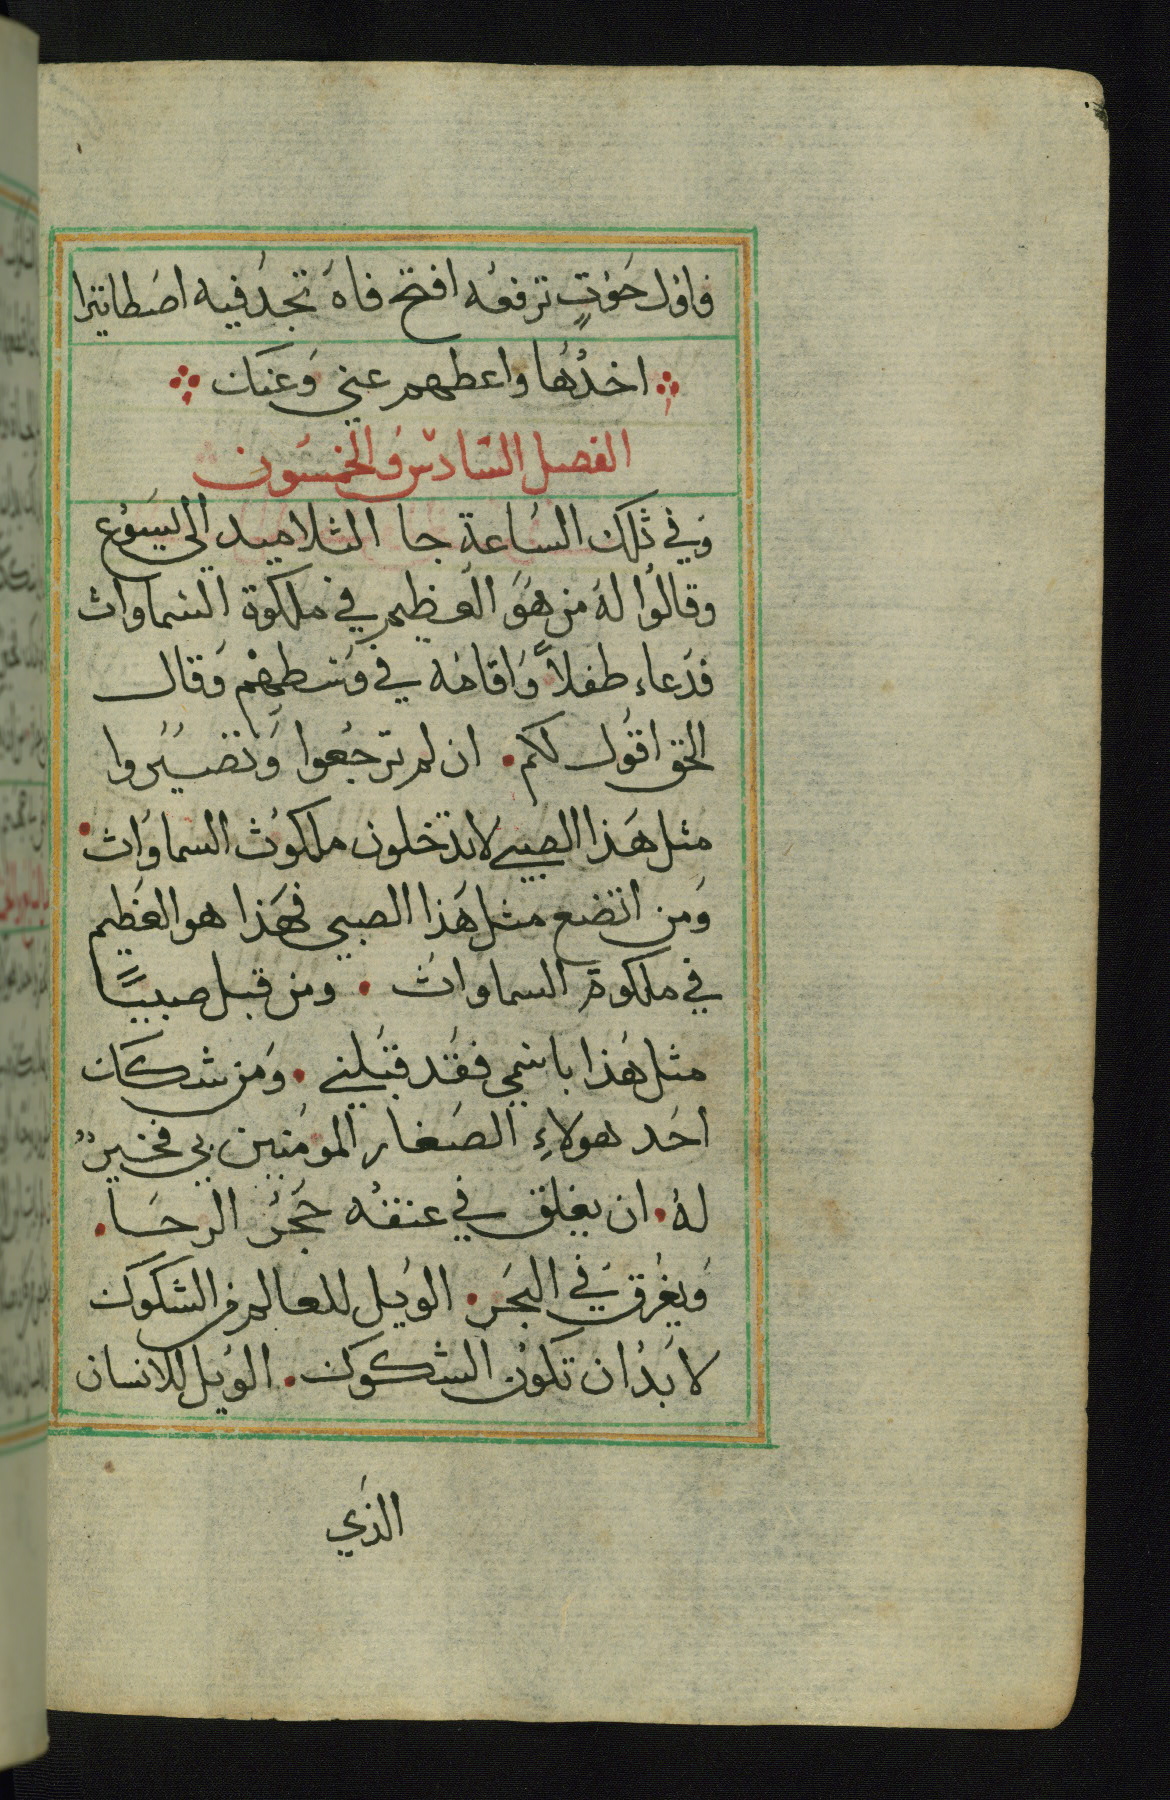 فاول حوت ترفعه افتح فاه تجد فيه اصطاتيرا
اخدها واعطهم عني وعنك
الفصل السادس والخمسون
وفي ثلك الساعة جا التلاميد الي يسوع
وقالوا له من هو العظيم في ملكوة السماوات
فدعاء طفلاً واقامه في وسطهم وقال
الحق اقول لكم. ان لم ترجعوا وتصيروا
مثل هذا الصبي لا تدخلون ملكوث السماواث
ومن اتضع مثل هذا الصبي فهذا هو العظيم
في ملكوة السماواث. ومن قبل صبيًا
مثل هذا باسمي فقد قبلني. ومن شكك
احد هولاءِ الصغار المومنين بي فخير
له. ان يعلق في عنقه حجر الرحا.
ويغرق في البحر. الويل للعالم من الشكوك
لا بد ان تكون الشكوك. الويل للانسان
الذي